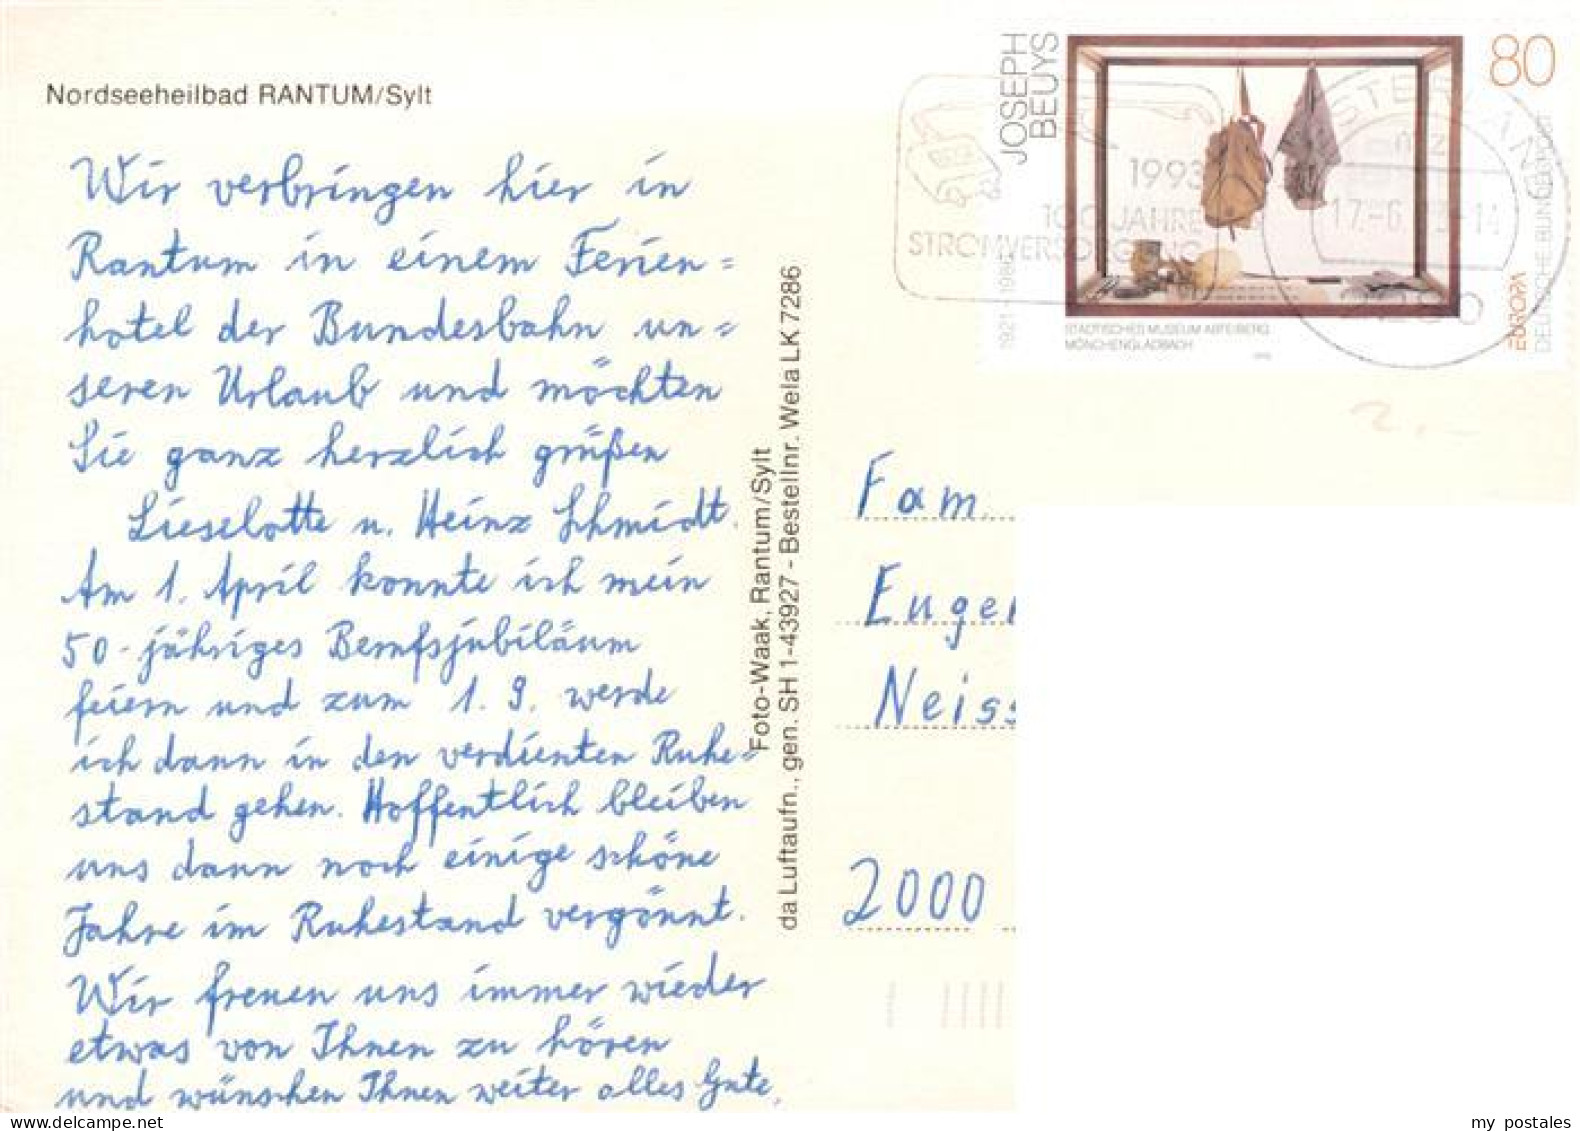 Nordseeheilbad RANTUM/Sylt
Wir verbringen hier in
Rantum in einem Ferien=
hotel der Bundesbahn un=
seren Urlaub und möchten
Sie ganz herzlich grüßen
Lieselotte u. Heinz Schmidt.
Am 1. April konnte ich mein
50-jähriges Berufsjubiläum
feiern und zum 1. 9. werde
ich dann in den verdienten Ruhe=
stand gehen. Hoffentlich bleiben
uns dann noch einige schöne
Jahre im Ruhestand vergönnt.
Wir freuen uns immer wieder
etwas von Ihnen zu hören
und wünschen Ihnen weiter alles Gute.
Foto-Waak, Rantum/Sylt
da Luftaufn., gen. SH 1-43927 - Bestellnr. Wela LK 7286
JOSEPH
BEUYS
1921 - 1986
80
STÄDTISCHES MUSEUM ABTEIBERG
MÖNCHENGLADBACH
EUROPA
DEUTSCHE BUNDESPOST
1993
100 JAHRE
STROMVERSORGUNG
STERLAND
mz
17.-6. -14
2280
2,-
Fam.
Eugen
Neiss
2000
my postales
www.delcampe.net